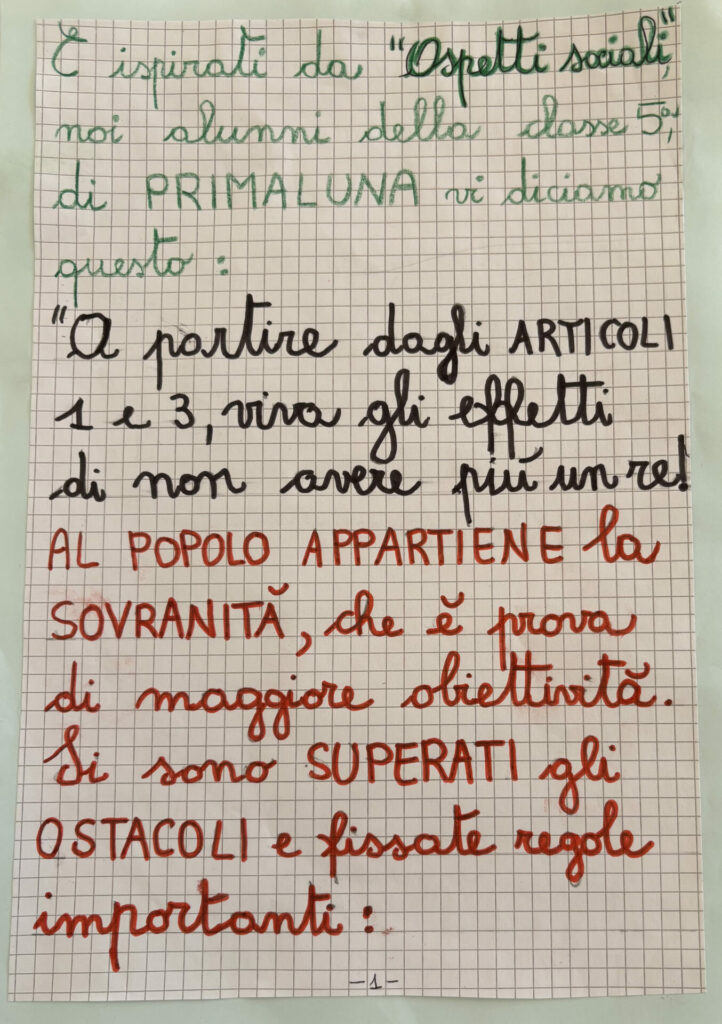 E ispirati da "Aspetti sociali",
noi alunni della classe 5ª,
di PRIMALUNA vi diciamo
questo :
"A partire dagli ARTICOLI
1 e 3, viva gli effetti
di non avere più un re!
AL POPOLO APPARTIENE la
SOVRANITÀ, che è prova
di maggiore obiettività.
Si sono SUPERATI gli
OSTACOLI e fissate regole
importanti :
-1-